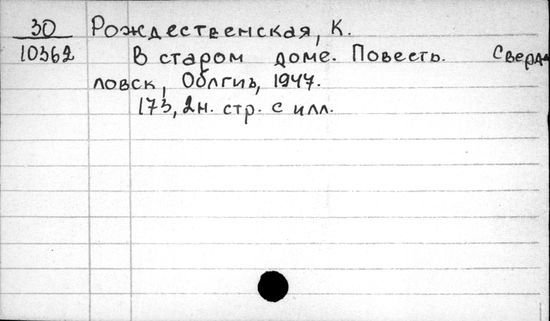 30 Рождественская, К.
10362 В старом доме. Повесть. Сверд
ловск, Облгиз, 1947.
173, 2н. стр. с илл.